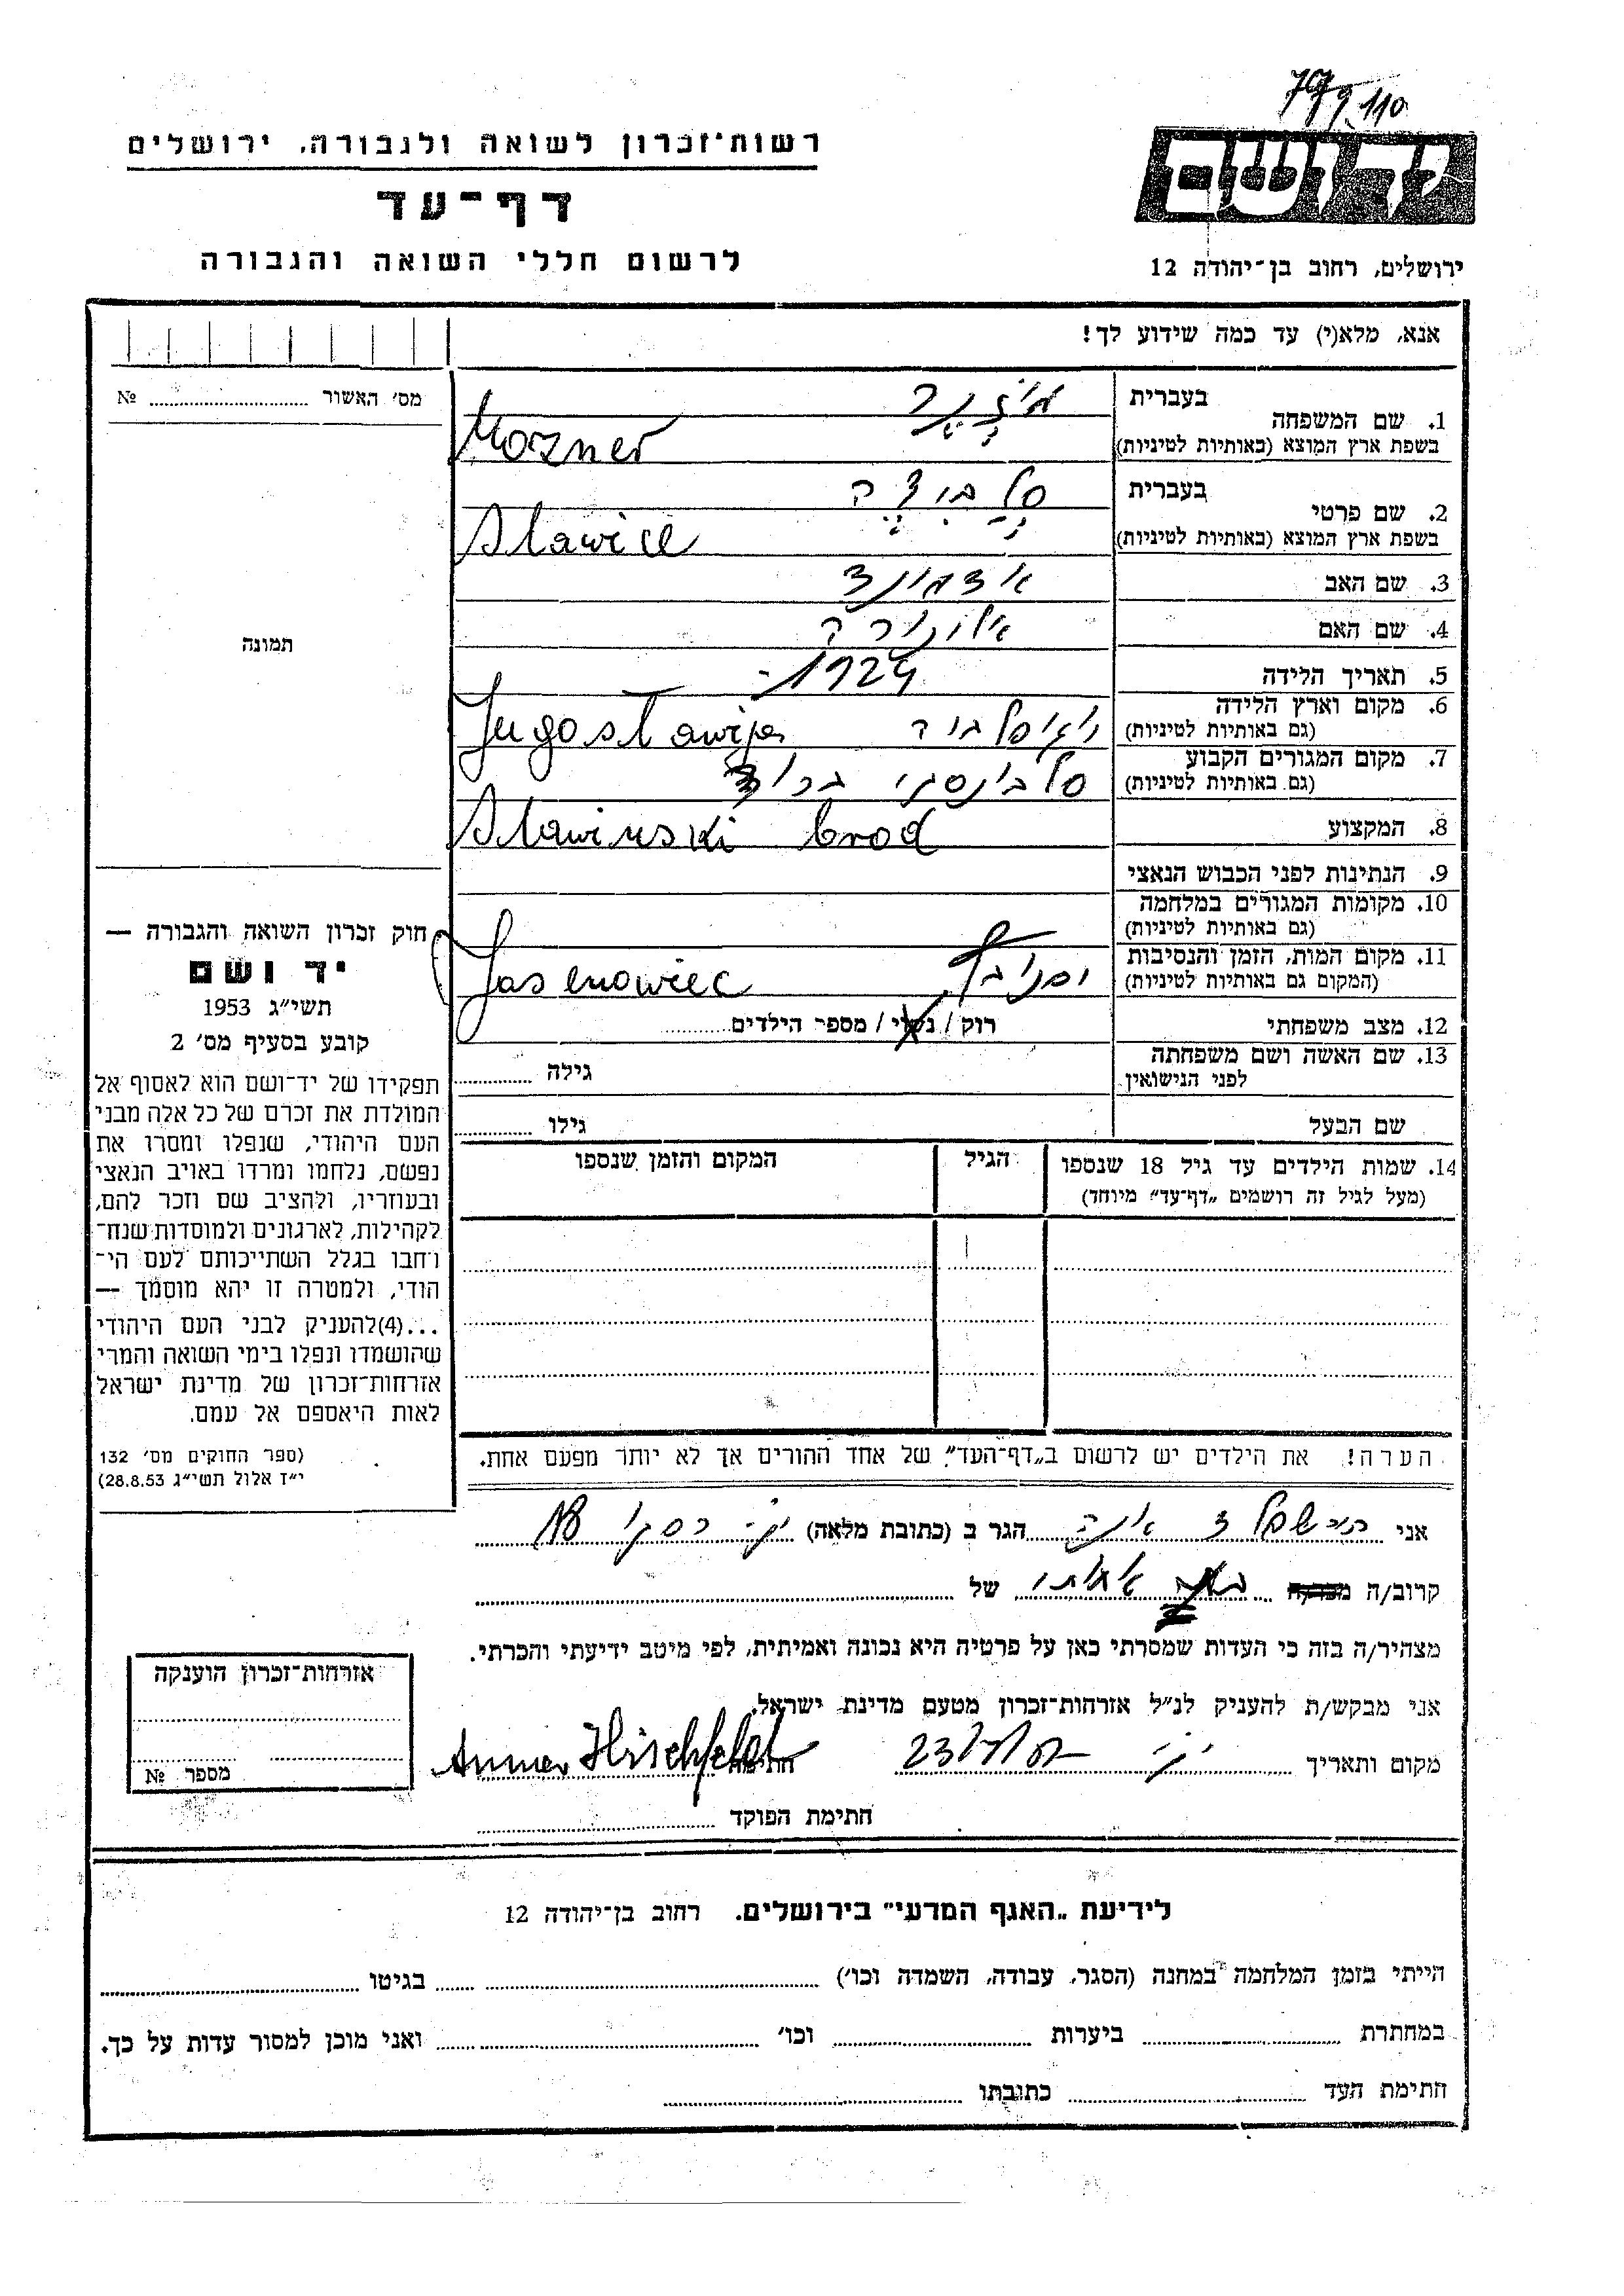 רשות־זכרון לשואה ולגבורה, ירושלים
דף־עד
לרשום חללי השואה והגבורה
יד ושם
ירושלים, רחוב בן־יהודה 12
אנא, מלא(י) עד כמה שידוע לך!
מס׳ האשור № 
תמונה
1. שם המשפחה
בעברית
בשפת ארץ המוצא (באותיות לטיניות)
Mozner
2. שם פרטי
בעברית
בשפת ארץ המוצא (באותיות לטיניות)
Slawice
3. שם האב
4. שם האם
5. תאריך הלידה 1924
6. מקום וארץ הלידה
(גם באותיות לטיניות)
Jugoslawija
7. מקום המגורים הקבוע
(גם באותיות לטיניות)
8. המקצוע
Slawinski brod
9. הנתינות לפני הכבוש הנאצי
10. מקומות המגורים במלחמה
(גם באותיות לטיניות)
11. מקום המות, הזמן והנסיבות
(המקום גם באותיות לטיניות)
Jasenowiec
12. מצב משפחתי רוק / נשוי / מספר הילדים
13. שם האשה ושם משפחתה
לפני הנישואין
גילה
שם הבעל גילו
14. שמות הילדים עד גיל 18 שנספו
(מעל לגיל זה רושמים „דף־עד״ מיוחד)
הגיל
המקום והזמן שנספו
חוק זכרון השואה והגבורה —
יד ושם
תשי״ג 1953
קובע בסעיף מס׳ 2
תפקידו של יד־ושם הוא לאסוף אל
המולדת את זכרם של כל אלה מבני
העם היהודי, שנפלו ומסרו את
נפשם, נלחמו ומרדו באויב הנאצי
ובעוזריו, ולהציב שם וזכר להם,
לקהילות, לארגונים ולמוסדות שנח־
רחבו בגלל השתייכותם לעם הי־
הודי, ולמטרה זו יהא מוסמך —
...(4)להעניק לבני העם היהודי
שהושמדו ונפלו בימי השואה והמרי
אזרחות־זכרון של מדינת ישראל
לאות היאספם אל עמם.
(ספר החוקים מס׳ 132
י״ז אלול תשי״ג 28.8.53)
הערה! את הילדים יש לרשום ב„דף־העד״ של אחד ההורים אך לא יותר מפעם אחת.
אני הירשפלד אנה הגר ב (כתובת מלאה) 18
קרוב/ה מכר/ה של
מצהיר/ה בזה כי העדות שמסרתי כאן על פרטיה היא נכונה ואמיתית, לפי מיטב ידיעתי והכרתי.
אני מבקש/ת להעניק לנ״ל אזרחות־זכרון מטעם מדינת ישראל.
מקום ותאריך חתימה Anna Hirschfeld
חתימת הפוקד
אזרחות־זכרון הוענקה
מספר №
לידיעת „האגף המדעי״ בירושלים. רחוב בן־יהודה 12
הייתי בזמן המלחמה במחנה (הסגר, עבודה, השמדה וכו׳) בגיטו
במחתרת ביערות וכו׳ ואני מוכן למסור עדות על כך.
חתימת העד כתובתו